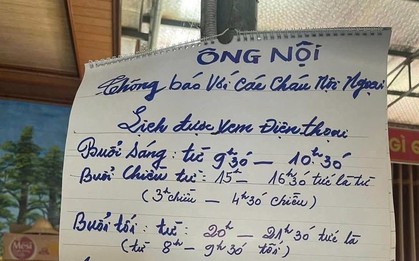 ÔNG NỘI
Thông báo Với Các Cháu Nội Ngoại
Lịch được xem Điện thoại
Buổi sáng: từ 9ʰ30 – 10ʰ30
Buổi chiều từ: 15ʰ – 16ʰ30 tức là từ
(3ʰ chiều – 4ʰ30 chiều)
Buổi tối: từ: 20ʰ – 21ʰ30 tức là
(từ 8ʰ – 9ʰ30 tối)
GÌ